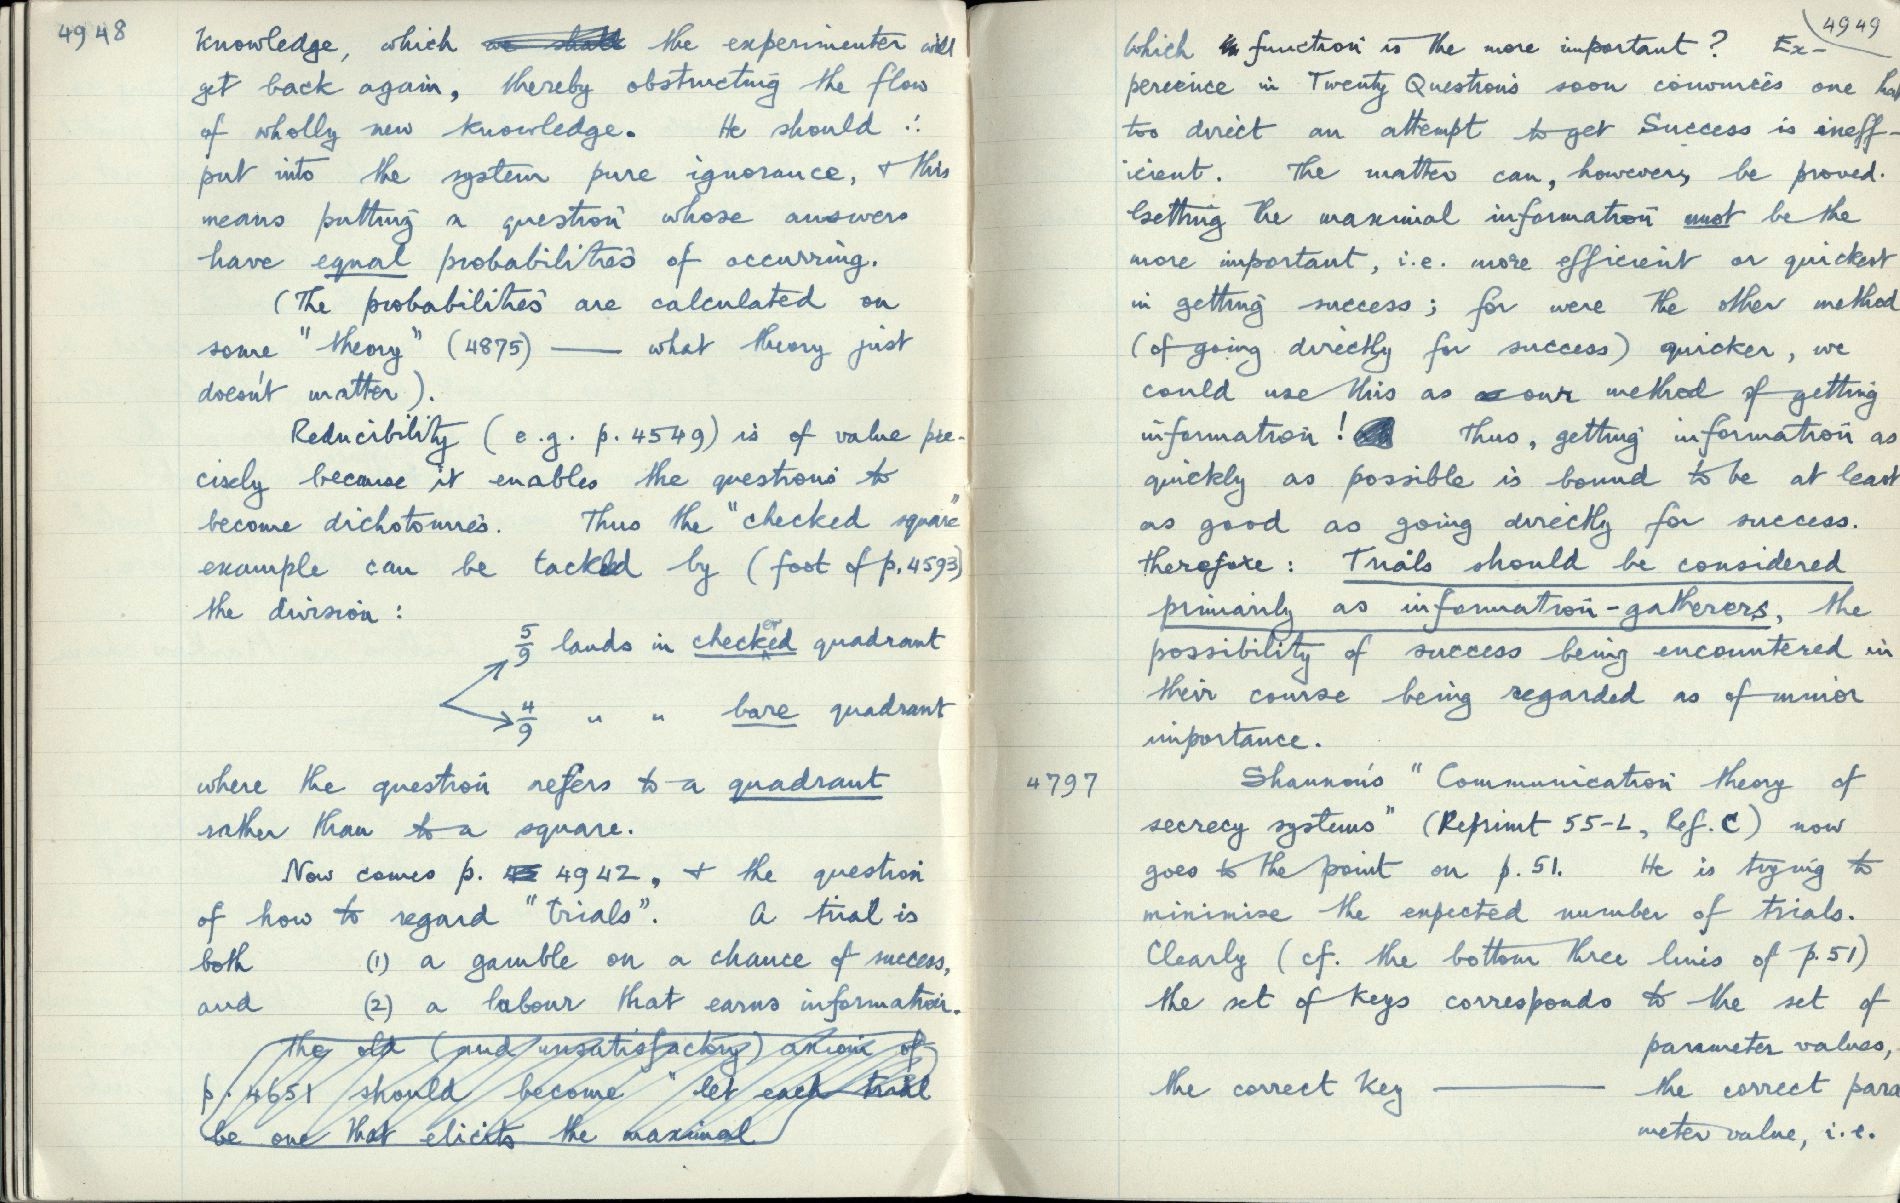 4948
knowledge, which we shall the experimenter will
get back again, thereby obstructing the flow
of wholly new knowledge. He should ∴
put into the system pure ignorance, & this
means putting a question whose answers
have equal probabilities of occurring.
(The probabilities are calculated on
some "theory" (4875) —— what theory just
doesn't matter).
Reducibility (e.g. p. 4549) is of value pre-
cisely because it enables the questions to
become dichotomies. Thus the "checked square"
example can be tackled by (foot of p. 4593)
the division:
5/9 lands in checkered quadrant
4/9 " " bare quadrant
where the question refers to a quadrant
rather than to a square.
Now comes p. 4942, & the question
of how to regard "trials". A trial is
both (1) a gamble on a chance of success,
and (2) a labour that earns information.
the old (and unsatisfactory) axiom of
p. 4651 should become "let each trial
be one that elicits the maximal
4949
Which function is the more important? Ex-
perience in Twenty Questions soon convinces one that
too direct an attempt to get Success is ineff-
icient. The matter can, however, be proved.
Getting the maximal information must be the
more important, i.e. more efficient or quickest
in getting success; for were the other method
(of going directly for success) quicker, we
could use this as our method of getting
information! Thus, getting information as
quickly as possible is bound to be at least
as good as going directly for success.
Therefore: Trials should be considered
primarily as information-gatherers, the
possibility of success being encountered in
their course being regarded as of minor
importance.
4797 Shannon's "Communication theory of
secrecy systems" (Reprint 55-L, Ref. C) now
goes to the point on p. 51. He is trying to
minimise the expected number of trials.
Clearly (cf. the bottom three lines of p. 51)
the set of keys corresponds to the set of
parameter values,
the correct key ———— the correct para
meter value, i.e.